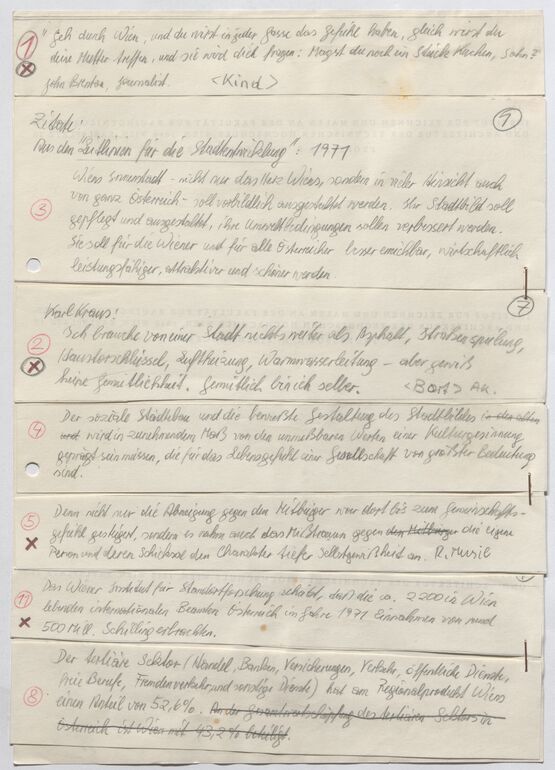 1 "Geh durch Wien, und du wirst in jeder Gasse das Gefühl haben, gleich wirst du
deine Mutter treffen, und sie wird dich fragen: Magst du noch ein Stück Kuchen, Sohn?"
John Brenton, Journalist. <Kind>
1
Zitate:
Aus den "Leitlinien für die Stadtentwicklung": 1971
Wiens Innenstadt - nicht nur das Herz Wiens, sondern in vieler Hinsicht auch
von ganz Österreich - soll vorbildlich ausgestaltet werden. Ihr Stadtbild soll
3 gepflegt und ausgestaltet, ihre Umweltbedingungen sollen verbessert werden.
Sie soll für die Wiener und für alle Österreicher besser erreichbar, wirtschaftlich
leistungsfähiger, attraktiver und schöner werden
7
Karl Kraus:
2 Ich brauche von einer Stadt nichts weiter als Asphalt, Straßenspülung,
Haustorschlüssel, Luftheizung, Warmwasserleitung - aber gewiß
keine Gemütlichkeit. Gemütlich bin ich selber.
4 Der soziale Städtebau und die bewußte Gestaltung des Stadtbildes in der alten
und wird in zunehmendem Maß von den unmeßbaren Werten einer Kulturgesinnung
geprägt sein müssen, die für das Lebensgefühl einer Gesellschaft von größter Bedeutung
sind.
5 Denn nicht nur die Abneigung gegen den Mitbürger war dort bis zum Gemeinschafts-
gefühl gesteigert, sondern es nahm auch das Mißtrauen gegen den Mitbürger die eigene
Person und deren Schicksal den Charakter tiefer Selbstgewißheit an. R. Musil
11 Das Wiener Institut für Standortforschung schätzt, daß die ca. 2200 in Wien
lebenden internationalen Beamten Österreich im Jahre 1971 Einnahmen von rund
500 Mill. Schilling erbrachten.
Der tertiäre Sektor (Handel, Banken, Versicherungen, Verkehr, öffentliche Dienste,
8 freie Berufe, Fremdenverkehr und sonstige Dienste) hat am Regionalprodukt Wiens
einen Anteil von 52,6%. An der Gesamtwertschöpfung des tertiären Sektors in
Österreich ist Wien mit 43,2% beteiligt.